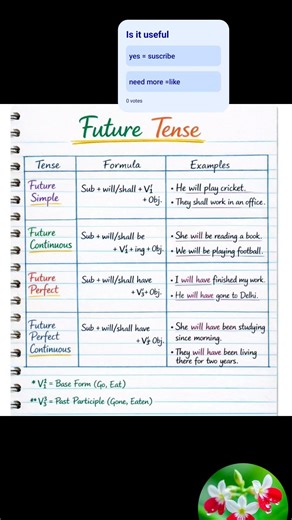 Is it useful
yes = suscribe
need more =like
0 votes
Future Tense
Tense Formula Examples
Future Simple
Sub + will/shall + V1
+ Obj.
• He will play cricket.
• They shall work in an office.
Future Continuous
Sub + will/shall be
+ V1 + ing + Obj.
• She will be reading a book.
• We will be playing football.
Future Perfect
Sub + will/shall have
+ V3 + Obj.
• I will have finished my work.
• He will have gone to Delhi.
Future
Perfect
Continuous
Sub + will/shall have
Obj.
• She will have been studying
since morning.
• They will have been living
there for two years.
* V1 = Base Form (Go, Eat)
** V3 = Past Participle (Gone, Eaten)